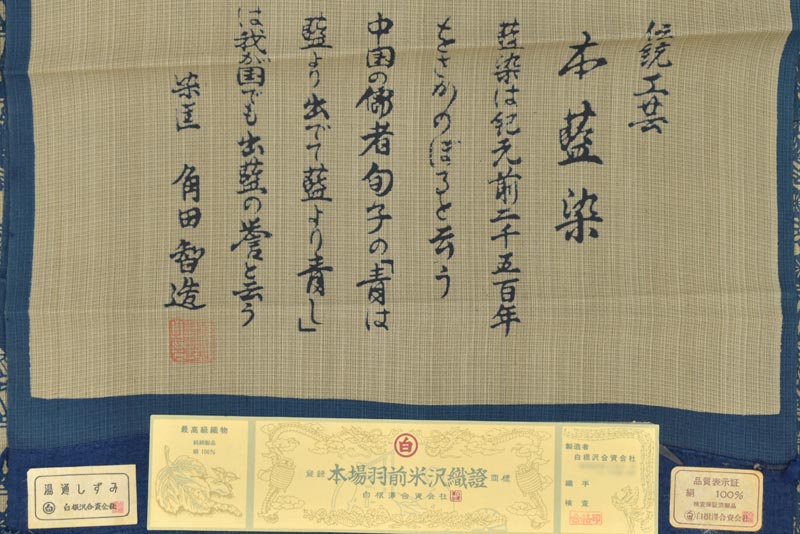 伝統工芸
本藍染
藍染は紀元前二千五百年
をさかのぼると云う
中国の儒者旬子の「青は
藍より出でて藍より青し」
は我が国でも出藍の誉と云う
染匠 角田智造
湯通しずみ
白 白根沢合資会社
最高級織物
絹 100%
白
登録 本場羽前米沢織證 商標
白根澤合資会社
製造者
白根沢合資会社
織手
検査
品質表示証
絹 100%
検査保証済製品
白 白根澤合資会社